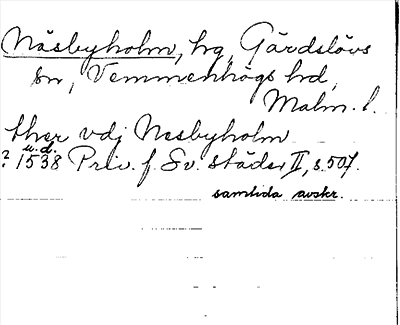 Näsbyholm, hg, Gärdslövs
sn, Vemmenhögs hd,
Malm. l.
ther vdj Nesbyholm
u.d.
? 1538 Priv. f. Sv. städer II, s. 507.
samtida avskr.